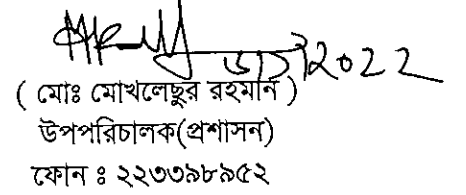 ( মোঃ মোখলেছুর রহমান )
উপপরিচালক(প্রশাসন)
ফোন ঃ ২২৩৩৯৮৯৫২